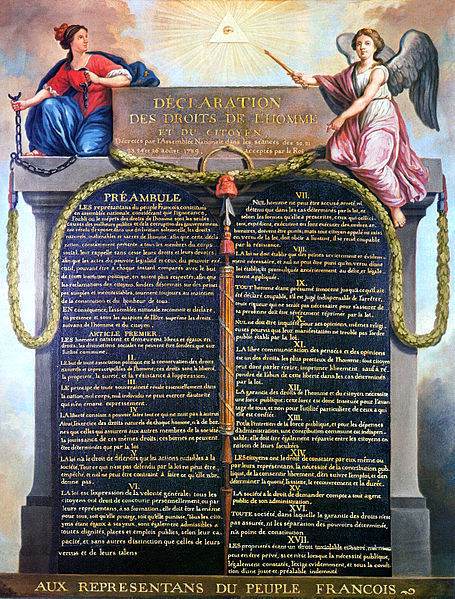 DÉCLARATION
DES DROITS DE L'HOMME
ET DU CITOYEN,
Décrétés par l'Assemblée Nationale dans les séances des 20, 21,
23, 24 et 26 août 1789, acceptés par le Roi
PRÉAMBULE
LES représentans du peuple François, constitués
en assemblée nationale, considérant que l'ignorance,
l'oubli ou le mépris des droits de l'homme sont les seules
causes des malheurs publics et de la corruption des gouvernemens
ont résolu d'exposer dans une déclaration solemnelle, les droits
naturels, inaliénables et sacrés de l'homme; afin que cette décla-
ration, constamment présente à tous les membres du corps
social, leur rappelle sans cesse leurs droits et leurs devoirs;
afin que les actes du pouvoir législatif et ceux du pouvoir exé-
cutif, pouvant être à chaque instant comparés avec le but
de toute institution politique, en soient plus respectés; afin que
les réclamations des citoyens, fondées désormais sur des princi-
pes simples et incontestables, tournent toujours au maintien
de la constitution et du bonheur de tous.
EN conséquence, l'assemblée nationale reconnoit et déclare,
en présence et sous les auspices de l'Être suprême les droits
suivans de l'homme et du citoyen.
ARTICLE PREMIER.
LES hommes naissent et demeurent libres et égaux en
droits, les distinctions sociales ne peuvent être fondées que sur
l'utilité commune.
II.
LE but de toute association politique est la conservation des droits
naturels et imprescriptibles de l'homme; ces droits sont la liberté,
la propriété, la sureté, et la résistance à l'oppression.
III.
LE principe de toute souveraineté réside essentiellement dans
la nation, nul corps, nul individu ne peut exercer d'autorité
qui n'en émane expressément.
IV.
LA liberté consiste à pouvoir faire tout ce qui ne nuit pas à autrui
Ainsi, l'exercice des droits naturels de chaque homme, n'a de bor-
nes que celles qui assurent aux autres membres de la société
la jouissance de ces mêmes droits; ces bornes ne peuvent
être déterminées que par la loi
V.
LA loi n'a le droit de défendre que les actions nuisibles à la
société. Tout ce qui n'est pas défendu par la loi ne peut être
empêché, et nul ne peut être contraint à faire ce qu'elle n'or-
donne pas.
VI.
LA loi est l'expression de la volonté générale; tous les
citoyens ont droit de concourir personnellement, ou par
leurs représentans, à sa formation; elle doit être la même
pour tous, soit qu'elle protege, soit qu'elle punisse. Tous les cito-
yens étant égaux à ses yeux, sont également admissibles à
toutes dignités, places et emplois publics, selon leur ca-
pacité, et sans autres distinction que celles de leurs
vertus et de leurs talens
VII.
NUL homme ne peut être accusé, arrêté, ni
détenu que dans les cas déterminés par la loi, et
selon les formes qu'elle a prescrites, ceux qui sollici-
tent, expédient, exécutent ou font exécuter des ordres ar-
bitraires, doivent être punis; mais tout citoyen appelé ou saisi
en vertu de la loi, doit obéir à l'instant, il se rend coupable
par la résistance.
VIII.
LA loi ne doit établir que des peines strictement et évidem-
ment nécessaires, et nul ne peut être puni qu'en vertu d'une
loi établie et promulguée antérieurement au délit, et légale-
ment appliquée.
IX.
TOUT homme étant présumé innocent jusqu'à ce qu'il ait
été déclaré coupable, s'il est jugé indispensable de l'arrêter,
toute rigueur qui ne seroit pas nécessaire pour s'assurer de
sa personne doit être sévèrement réprimée par la loi.
X.
NUL ne doit être inquiété pour ses opinions, mêmes reli-
gieuses pourvu que leur manifestation ne trouble pas l'ordre
public établi par la loi.
XI.
LA libre communication des pensées et des opinions
est un des droits les plus precieux de l'homme; tout citoyen
peut donc parler, écrire, imprimer librement: sauf à ré-
pondre de l'abus de cette liberté dans les cas déterminés
par la loi.
XII.
LA garantie des droits de l'homme et du citoyen nécessite
une force publique; cette force est donc instituée pour l'avan-
tage de tous, et non pour l'utilité particuliere de ceux à qui
elle est confiée.
XIII.
POUR l'entretien de la force publique, et pour les dépenses
d'administration, une contribution commune est indispen-
sable; elle doit être également répartie entre les citoyens en
raison de leurs facultées
XIV.
LES citoyens ont le droit de constater par eux même ou
par leurs représentans, la nécessité de la contribution pub-
lique, de la consentir librement, d'en suivre l'emploi, et d'en
déterminer la quotité, l'assiette, le recouvrement et la durée.
XV.
LA société a le droit de demander compte à tout agent
public de son administration.
XVI.
TOUTE société, dans laquelle la garantie des droits n'est
pas assurée, ni les séparation des pouvoirs déterminée,
n'a point de constitution
XVII.
LES propriétés étant un droit inviolable et sacré, nul ne
peut en être privé, si ce n'est lorsque la nécessité publique,
légalement constatée, l'exige evidemment, et sous la condi-
tion d'une juste et préalable indemnité
AUX REPRESENTANS DU PEUPLE FRANCOIS